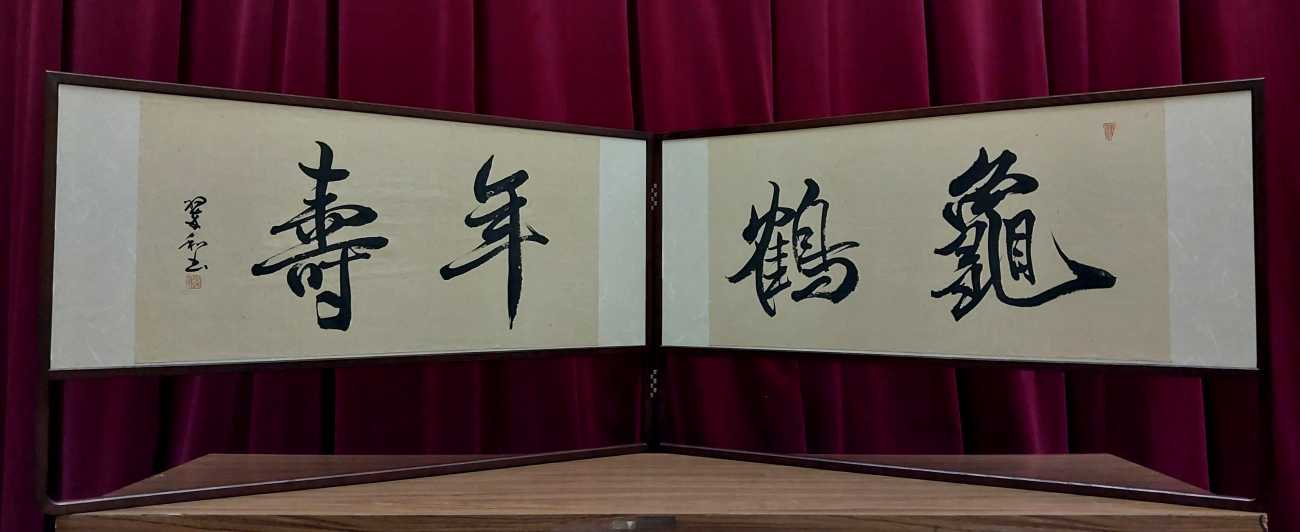 龜鶴
年壽
翠和書